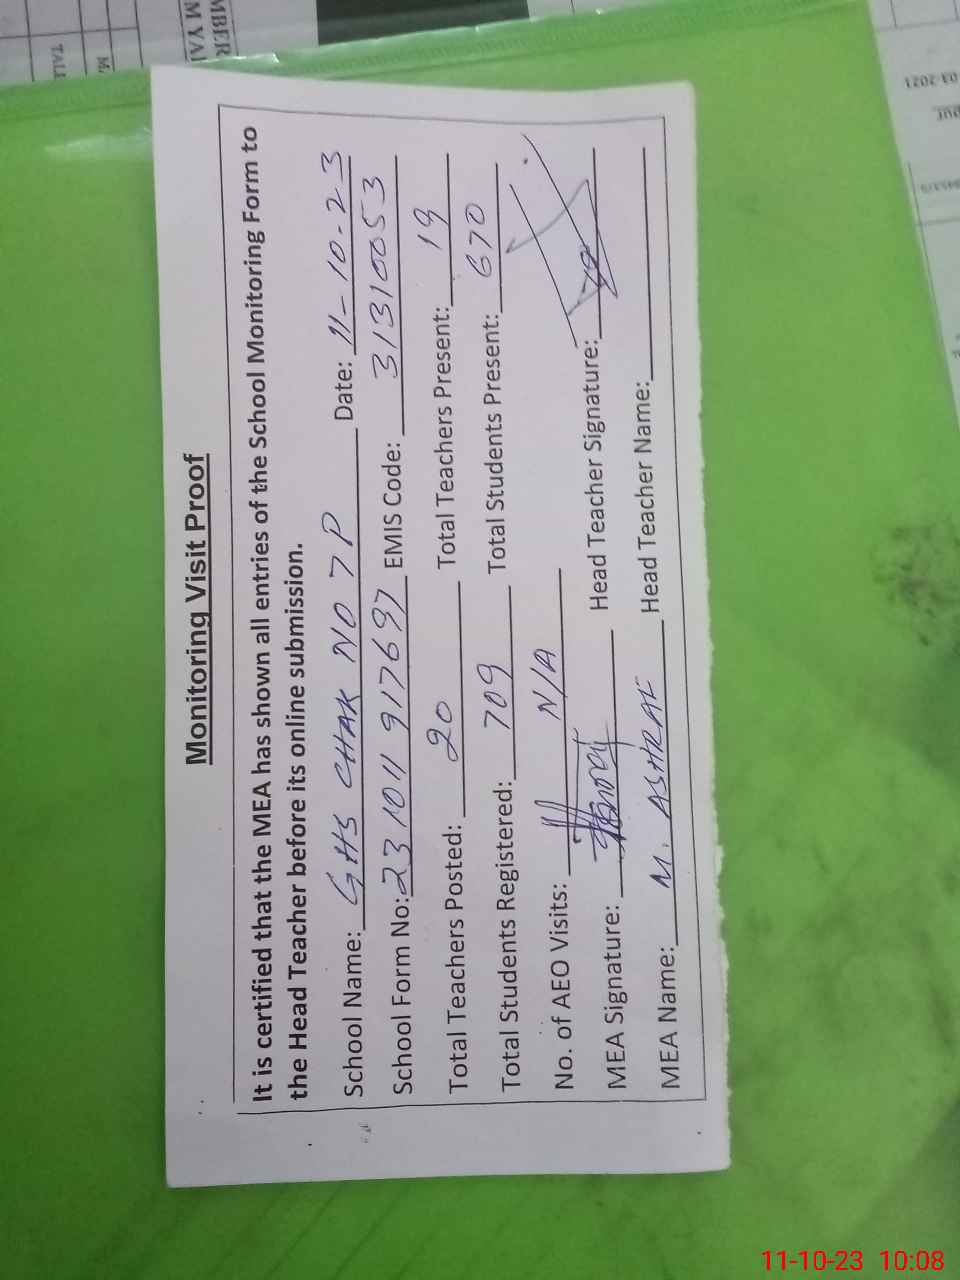 Monitoring Visit Proof
It is certified that the MEA has shown all entries of the School Monitoring Form to
the Head Teacher before its online submission.
School Name: GHS CHAK NO 7 P Date: 11-10-23
School Form No: 23 1011 917697 EMIS Code: 31310053
Total Teachers Posted: 20 Total Teachers Present: 19
Total Students Registered: 709 Total Students Present: 670
No. of AEO Visits: N/A
MEA Signature: Head Teacher Signature:
MEA Name: M. ASHRAF Head Teacher Name:
MBER
M YA
TALI
03-2021
11-10-23 10:08